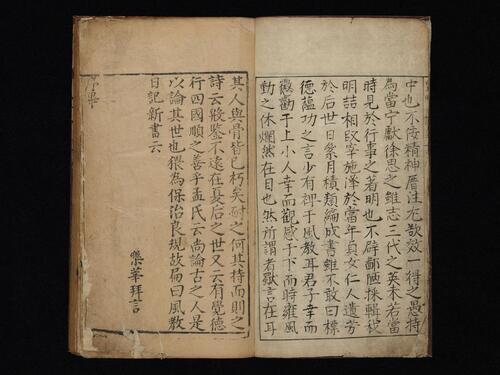 中也不佞精神厝注尤欲效一得之愚持
為當宁獻徐思之雖志三代之英未若當
時見於行事之著明也不辟鄙陋採輯
明詰相臤宰施澤於當年貞女仁人遺芳
於后世日絫月積類編成書雖不敢曰標
德蘊功之言少有裨于風教耳君子幸而
徽勸于上小人幸而觀感于下而時雍風
動之休爛然在目也然所謂者獸言在耳
其人與骨皆已朽矣耐之何其持而則之
詩云殷鑒不遠在夏后之世又云有覺德
行四國順之善乎孟氏云尚論古之人是
以論其世也猥為保治良規故局曰風教
日記新書云
樂華拜言
序畢